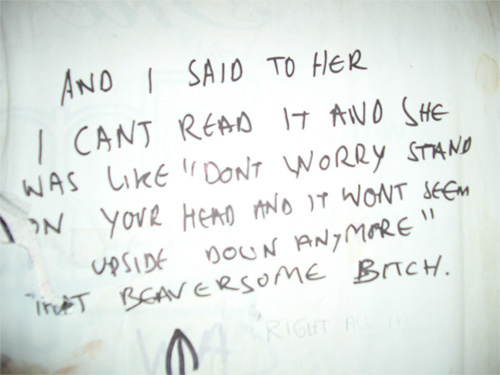 AND I SAID TO HER
I CANT READ IT AND SHE
WAS LIKE "DONT WORRY STAND
ON YOUR HEAD AND IT WONT SEEM
UPSIDE DOWN ANYMORE"
THAT BEAVERSOME BITCH.
"RIGHT ALL